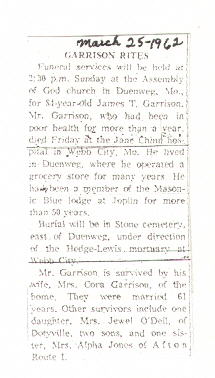 March 25-1962
GARRISON RITES
Funeral services will be held at
2:30 p.m. Sunday at the Assembly
of God church in Duenweg, Mo.,
for 84-year-old James T. Garrison.
Mr. Garrison, who had been in
poor health for more than a year,
died Friday at the Jane Chinn hos-
pital in Webb City, Mo. He lived
in Duenweg, where he operated a
grocery store for many years He
had been a member of the Mason-
ic Blue lodge at Joplin for more
than 50 years.
Burial will be in Stone cemetery,
east of Duenweg, under direction
of the Hedge-Lewis mortuary at
Webb City.
Mr. Garrison is survived by his
wife, Mrs. Cora Garrison, of the
home. They were married 61
years. Other survivors include one
daughter, Mrs. Jewel O'Dell, of
Dotyville, two sons, and one sis-
ter, Mrs. Alpha Jones of Afton
Route 1.